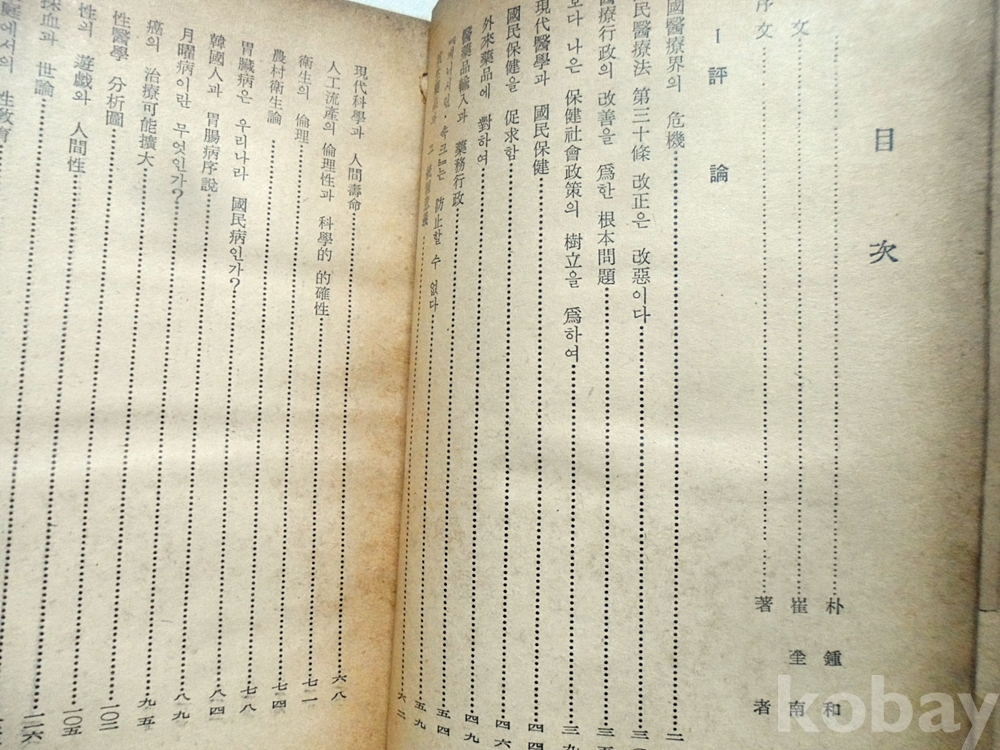 目次
朴鍾和
文 崔奎南
序文 著者
Ⅰ 評論
國醫療界의 危機 二
民醫療法 第三十條 改正은 改惡이다
醫療行政의 改善을 爲한 根本問題
보다 나은 保健社會政策의 樹立을 爲하여
現代醫學과 國民保健 四四
國民保健을 促求함 四六
外來藥品에 對하여 四九
醫藥品輸入과 藥務行政 五四
『페니시린·쇼크』는 防止할 수 없다 五九
六二
現代科學과 人間壽命 六八
人工流産의 倫理性과 科學的 的確性 七一
衛生의 倫理 七四
農村衛生論 七八
胃臟病은 우리나라 國民病인가? 八四
韓國人과 胃腸病序說 八九
月曜病이란 무엇인가? 九五
癌의 治療可能擴大 一〇二
性醫學 分析圖 一〇五
性의 遊戱와 人間性 一一六
採血과 世論
庭에서의 性敎育
kobay